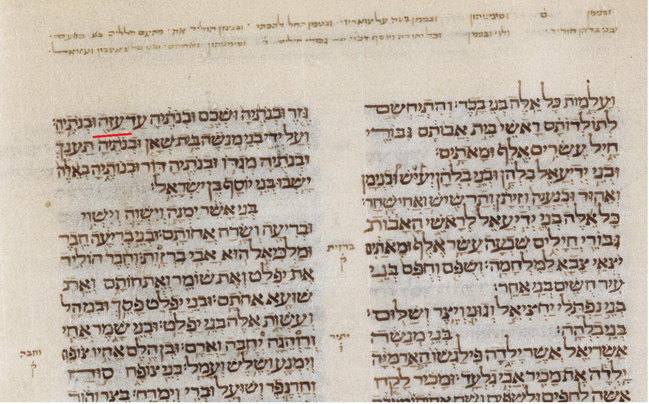 ועלמות כל אלה בני בכר והתיחשם
לתולדותם ראשי בית אבותם גבורי
חיל עשרים אלף ומאתים
ובני ידיעאל בלהן ובני בלהן יעיש ובנימן
ואהוד וכנענה וזיתן ותרשיש ואחישחר
כל אלה בני ידיעאל לראשי האבות
גבורי חילים שבעה עשר אלף ומאתים
יצאי צבא למלחמה ושפם וחפם בני
עיר חשים בני אחר
בני נפתלי יחציאל וגוני ויצר ושלום
בני בלהה בני מנשה
אשריאל אשר ילדה פילגשו הארמיה
ילדה את מכיר אבי גלעד ומכיר לקח
אשה לחפים ולשפים ושם
ברזית
ק
יתיר
ו
גזר ובנתיה ושכם ובנתיה עד עזה ובנתיה
ועל ידי בני מנשה בית שאן ובנתיה תענך
ובנתיה מגדו ובנותיה דור ובנותיה באלה
ישבו בני יוסף בן ישראל
בני אשר ימנה וישוה וישוי
ובריעה ושרח אחותם ובני בריעה חבר
ומלכיאל הוא אבי ברזות וחבר הוליד
את יפלט ואת שומר ואת חותם ואת
שועא אחותם ובני יפלט פסך ובמהל
ועשות אלה בני יפלט ובני שמר אחי
ורוהגה יחבה וארם ובן הלם אחיו צופח
וימנע ושלש ועמל בני צופח סוח
וחרנפר ושועל וברי וימרה בצר והוד
וחבה
ק